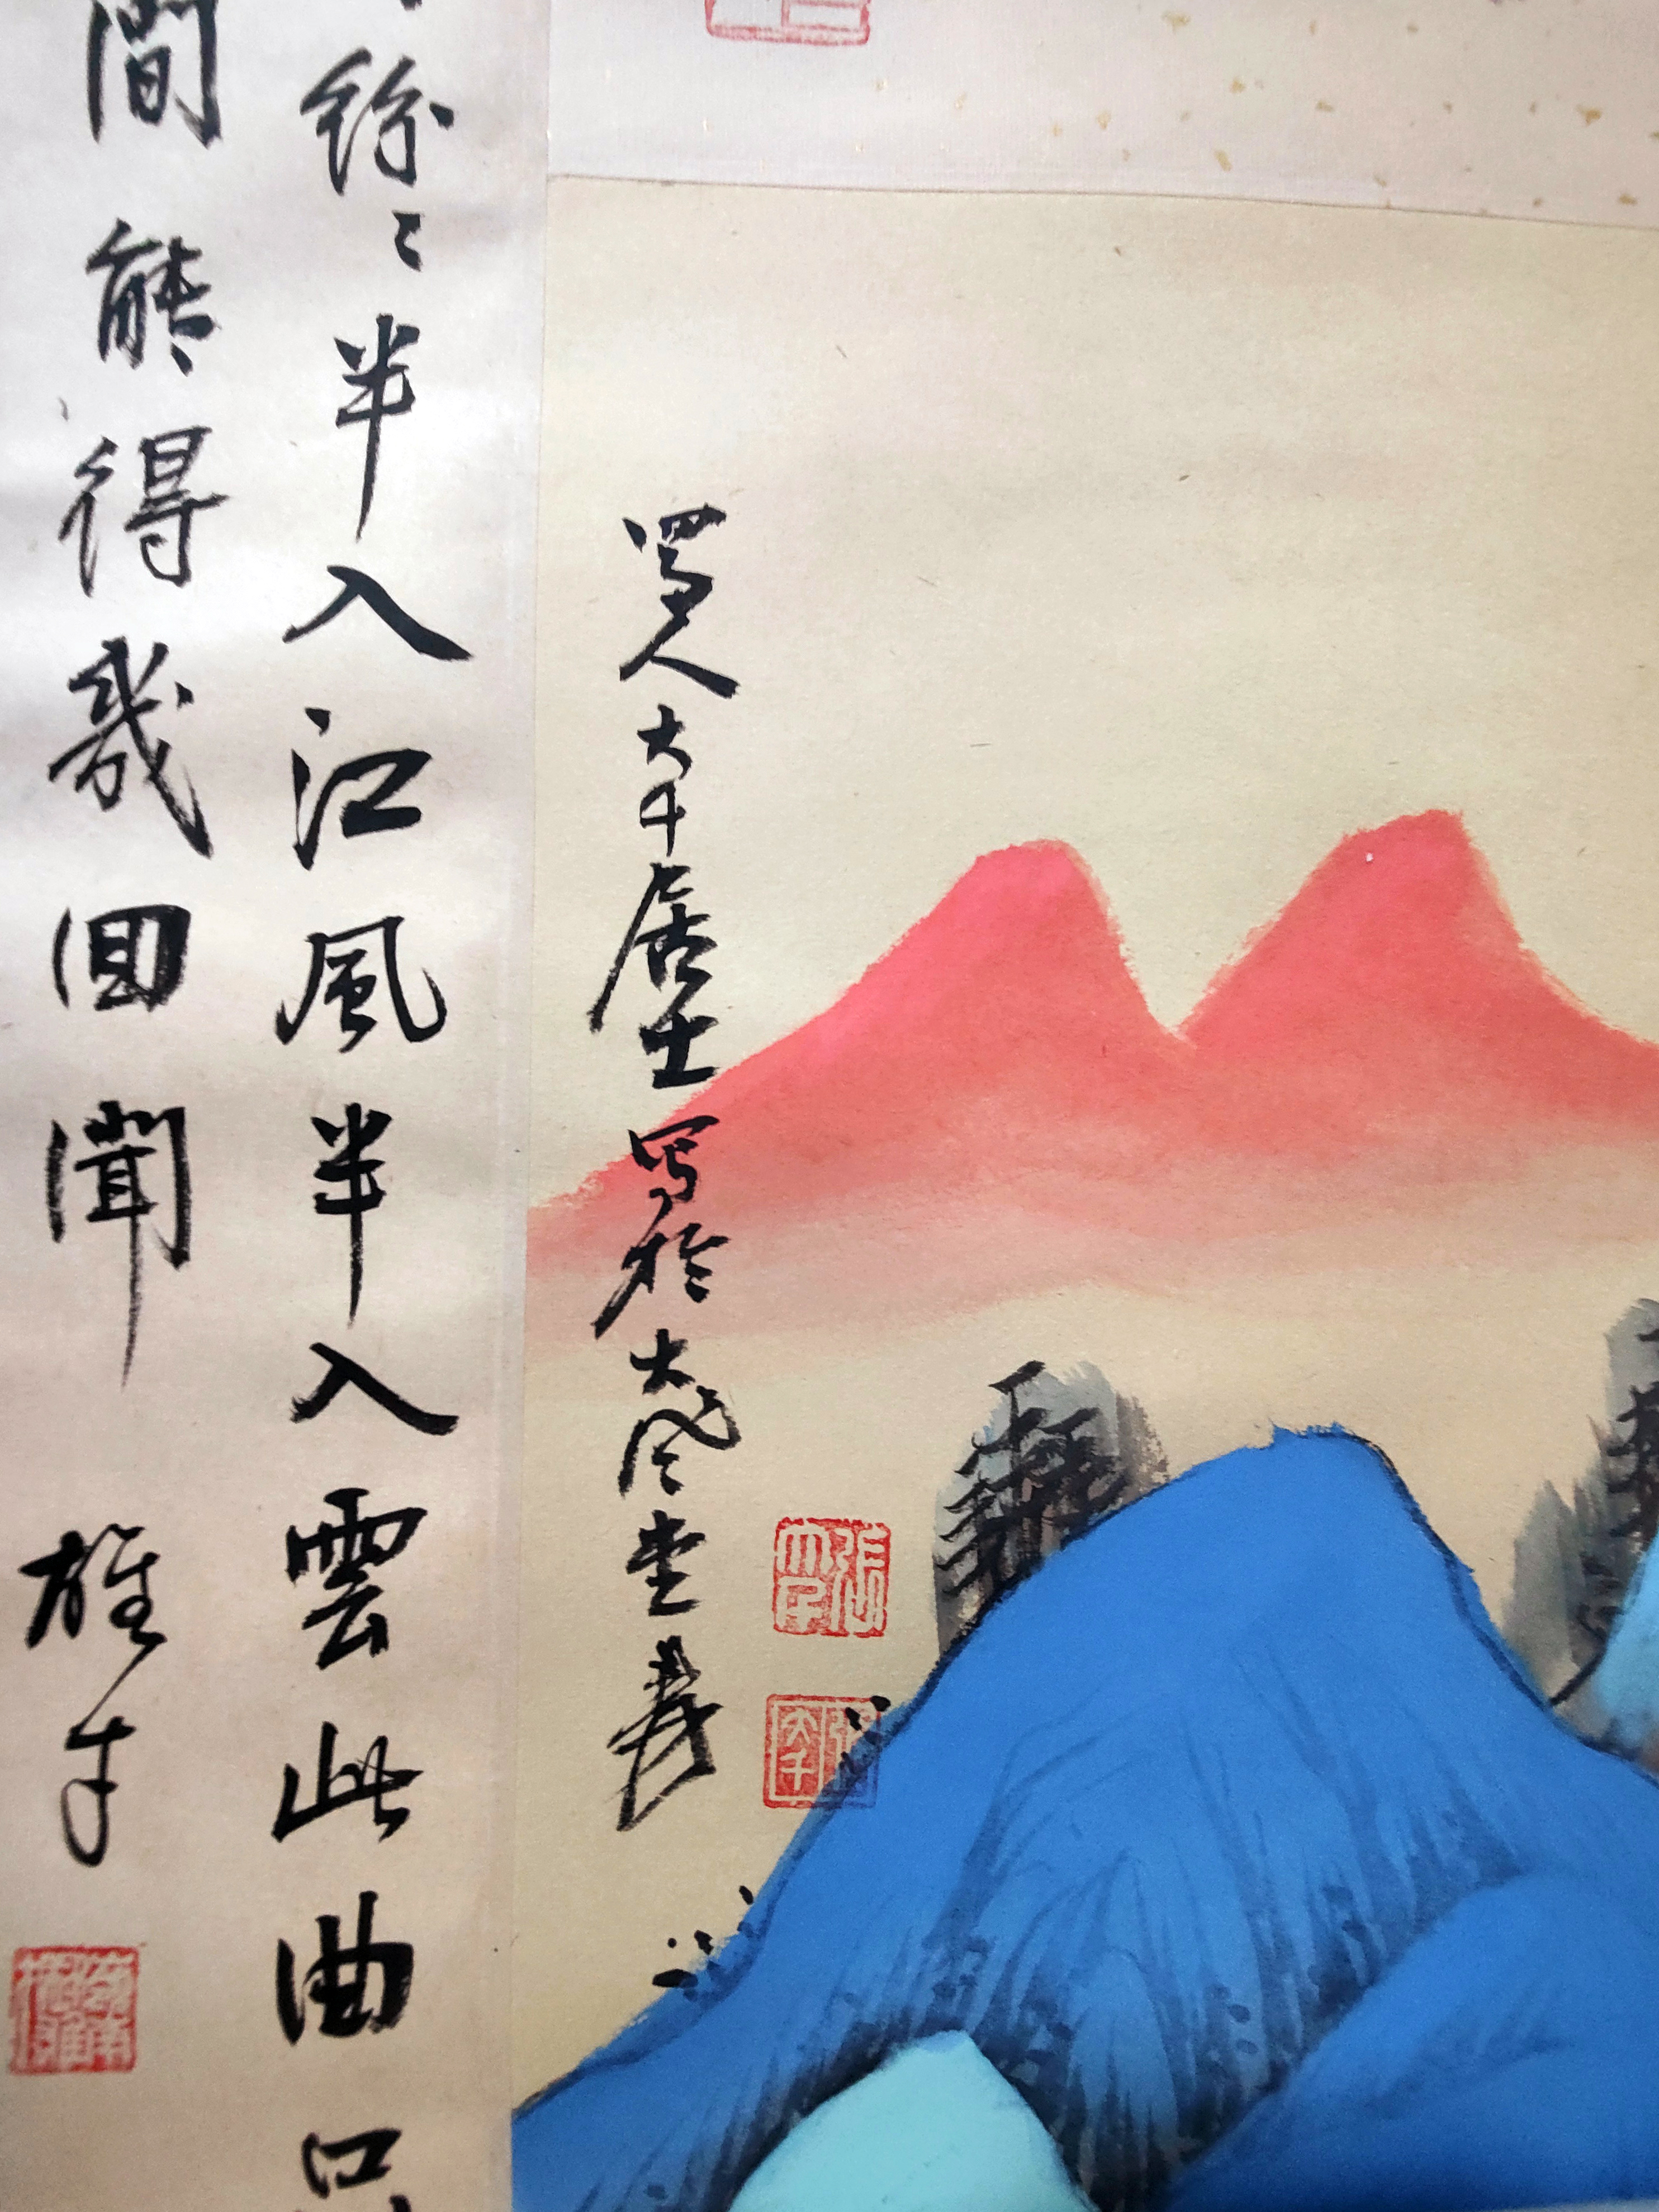 紛〻半入江風半入雲此曲只
間能得幾回聞 雄才
蜀人大千居士寫於大風堂爰
張爰
張大千